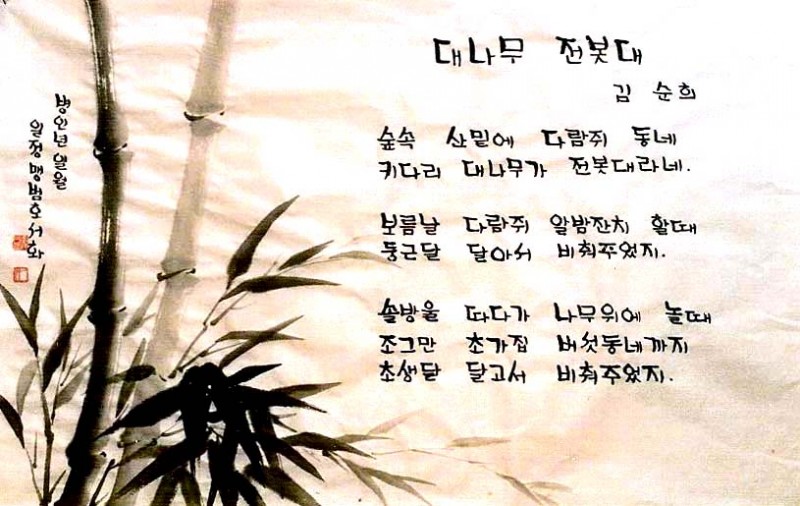 대나무 전봇대
김 순희
숲속 산밑에 다람쥐 동네
키다리 대나무가 전봇대라네.
보름날 다람쥐 알밤잔치 할때
둥근달 달아서 비춰주었지.
솔방울 따다가 나무위에 놀때
조그만 초가집 버섯동네까지
초생달 달고서 비춰주었지.
병인년 일월
일정 맹범호 서화